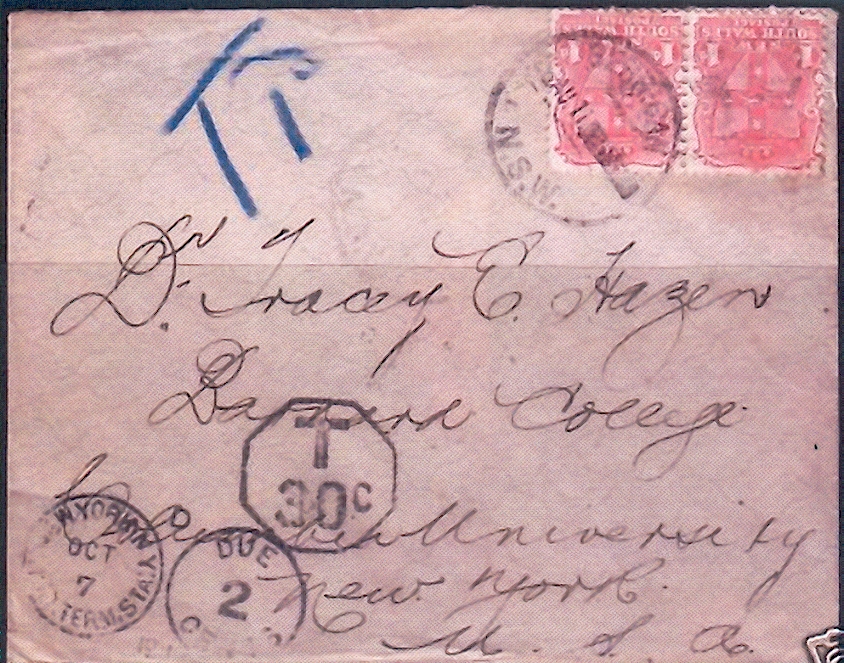 NEW
SOUTH WALES
POSTAGE
1d
NEW
SOUTH WALES
POSTAGE
1
N.S.W.
Dr. Tracey E. Hazen
Barnard College
T
30c
Columbia University
New York.
U. S. A.
N.Y.
OCT
7
TERM. STA.
DUE
2
CENTS